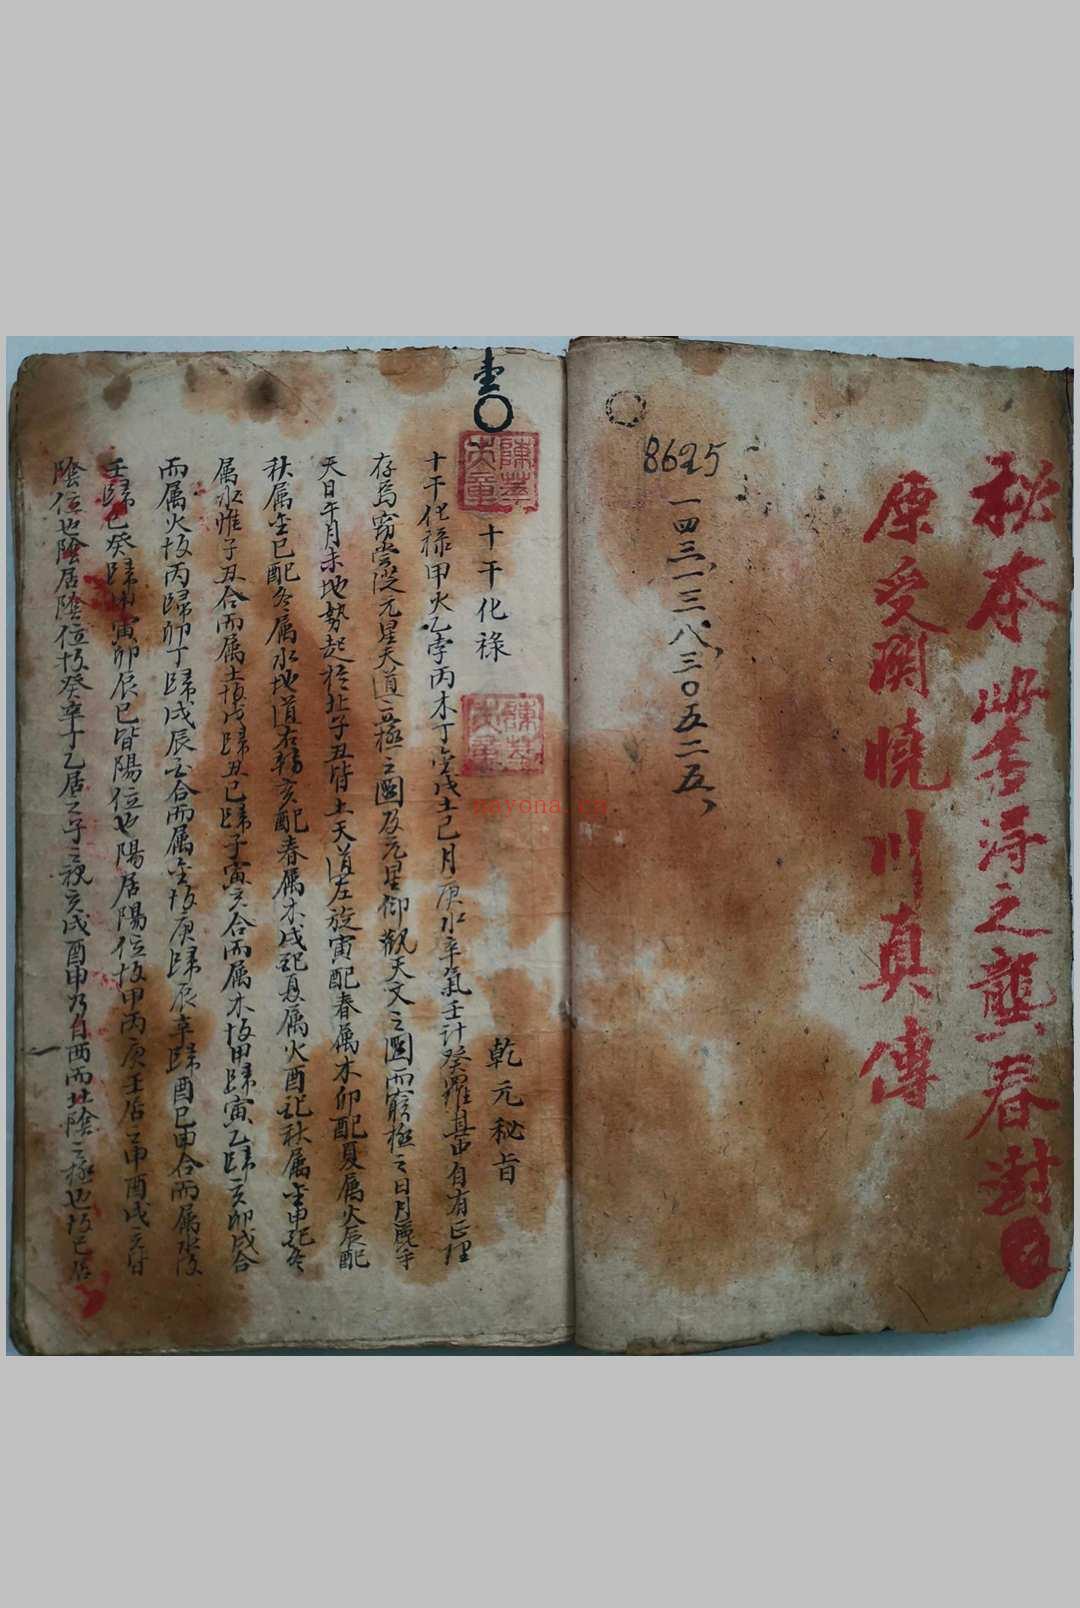 秘本此書得之龔春澍
原受関曉川真傳
8625
一四三、一三八、三〇五二五、
十干化祿
乾元秘旨
十干化祿甲火乙孛丙木丁金戊土己月庚水辛氣壬計癸羅其中自有正理
存焉窃嘗従元星天道立極之圖及元星仰觀天文之圖而窮極之日月麗乎
天日午月未地勢起於北子丑皆土天道左旋寅配春属木卯配夏属火辰配
秋属金巳配冬属水地道右轉亥配春属木戌配夏属火酉配秋属金申配冬
属水惟子丑合而属土故戊歸丑己歸子寅亥合而属木故甲歸寅乙歸亥卯戌合
而属火故丙歸卯丁歸戌辰酉合而属金故庚歸辰辛歸酉巳申合而属水故
壬歸巳癸歸申寅卯辰巳皆陽位也陽居陽位故甲丙庚壬居之申酉戌亥皆
陰位也陰居陰位故癸辛丁乙居之子之視亥戌酉申乃自西而北陰之極也故己居
nayona.cn